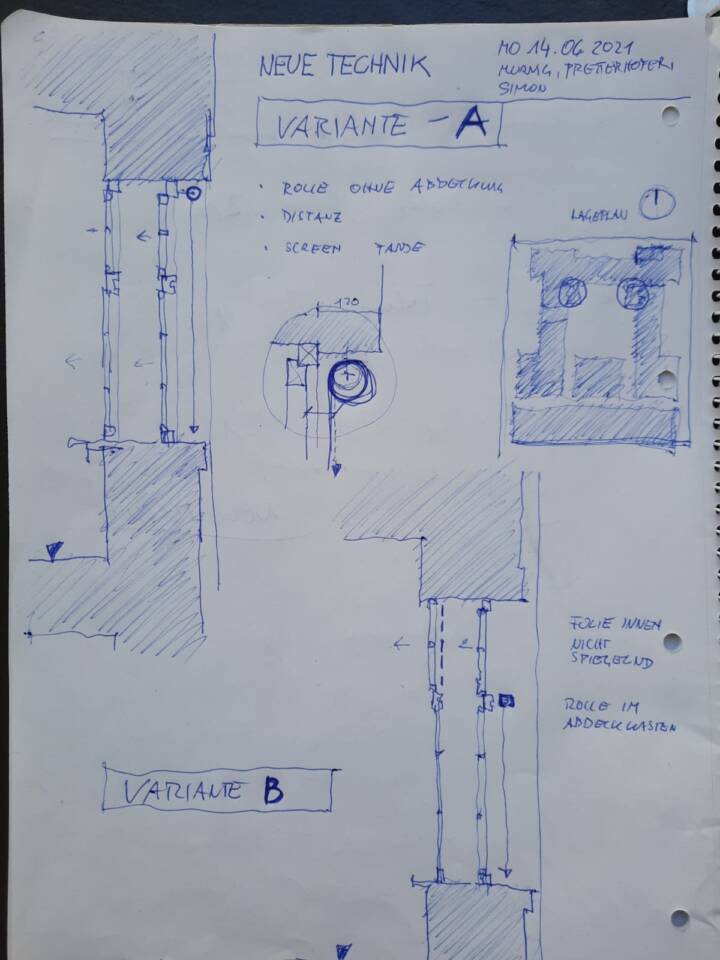 NEUE TECHNIK
MO 14.06 2021
SIMON
VARIANTE - A
• ROLLE OHNE ABDECKUNG
• DISTANZ
• SCREEN
LAGEPLAN
120
FOLIE INNEN
NICHT
SPIEGELND
ROLLE IM
ABDECKKASTEN
VARIANTE B